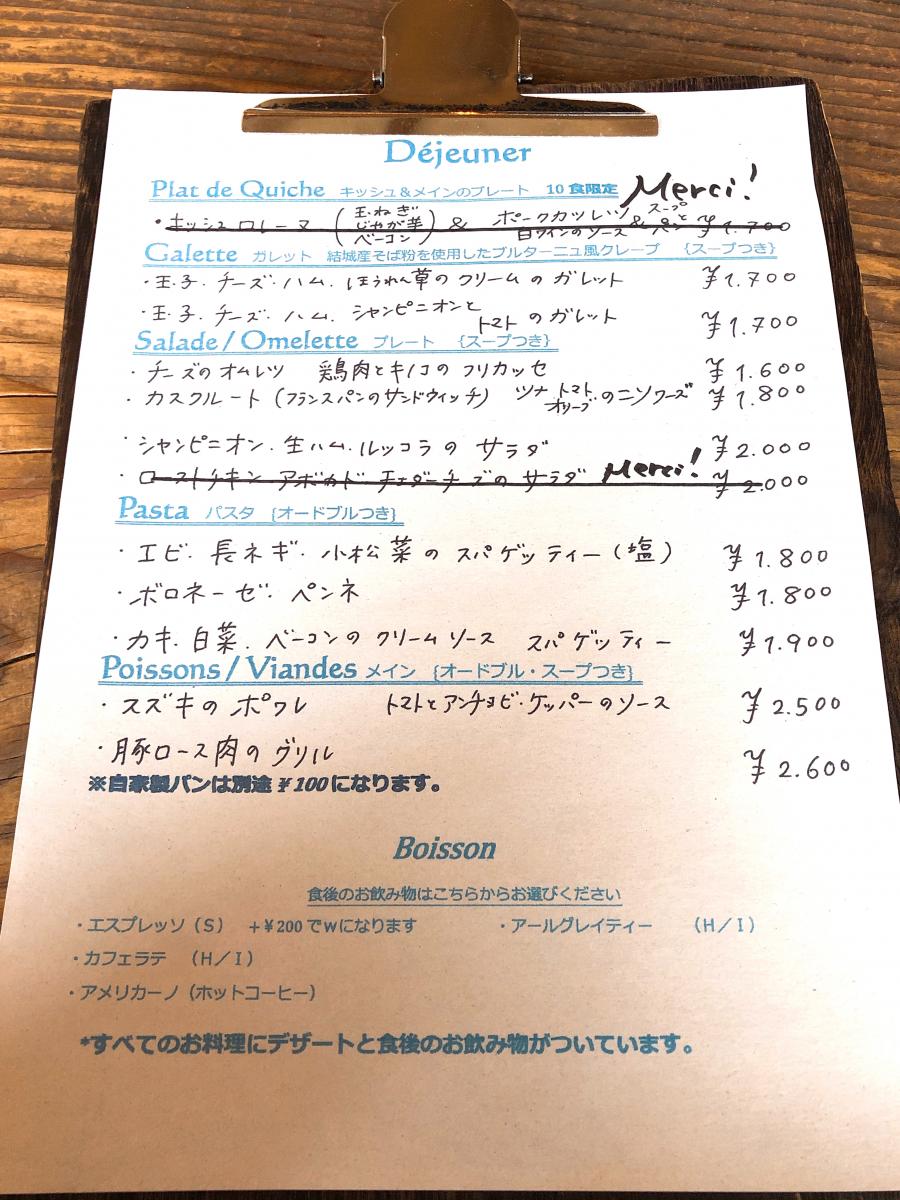 Déjeuner
Plat de Quiche キッシュ＆メインのプレート 10食限定 Merci!
・キッシュロレーヌ (玉ねぎ じゃが芋 ベーコン) & ポークカツレツ 白ワインのソース & スープ パン ¥1.700
Galette ガレット 結城産そば粉を使用したブルターニュ風クレープ {スープつき}
・玉子.チーズ.ハム.ほうれん草のクリームのガレット ¥1.700
・玉子.チーズ.ハム.シャンピニオンと トマトのガレット ¥1.700
Salade/Omelette プレート {スープつき}
・チーズのオムレツ 鶏肉とキノコのフリカッセ ¥1.600
・カスクルート(フランスパンのサンドウィッチ) ツナ トマト オリーブ.のニソワーズ ¥1.800
・シャンピニオン.生ハム.ルッコラのサラダ ¥2.000
・ローストチキン アボカド チェダーチーズのサラダ Merci! ¥2.000
Pasta パスタ {オードブルつき}
・エビ.長ネギ.小松菜のスパゲッティー(塩) ¥1.800
・ボロネーゼ.ペンネ ¥1.800
・カキ.白菜.ベーコンのクリームソース スパゲッティー ¥1.900
Poissons/Viandes メイン {オードブル・スープつき}
・スズキのポワレ トマトとアンチョビ・ケッパーのソース ¥2.500
・豚ロース肉のグリル ¥2.600
※自家製パンは別途¥100になります。
Boisson
食後のお飲み物はこちらからお選びください
・エスプレッソ（S） +¥200でwになります ・アールグレイティー （H／I）
・カフェラテ （H／I）
・アメリカーノ（ホットコーヒー）
*すべてのお料理にデザートと食後のお飲み物がついています。